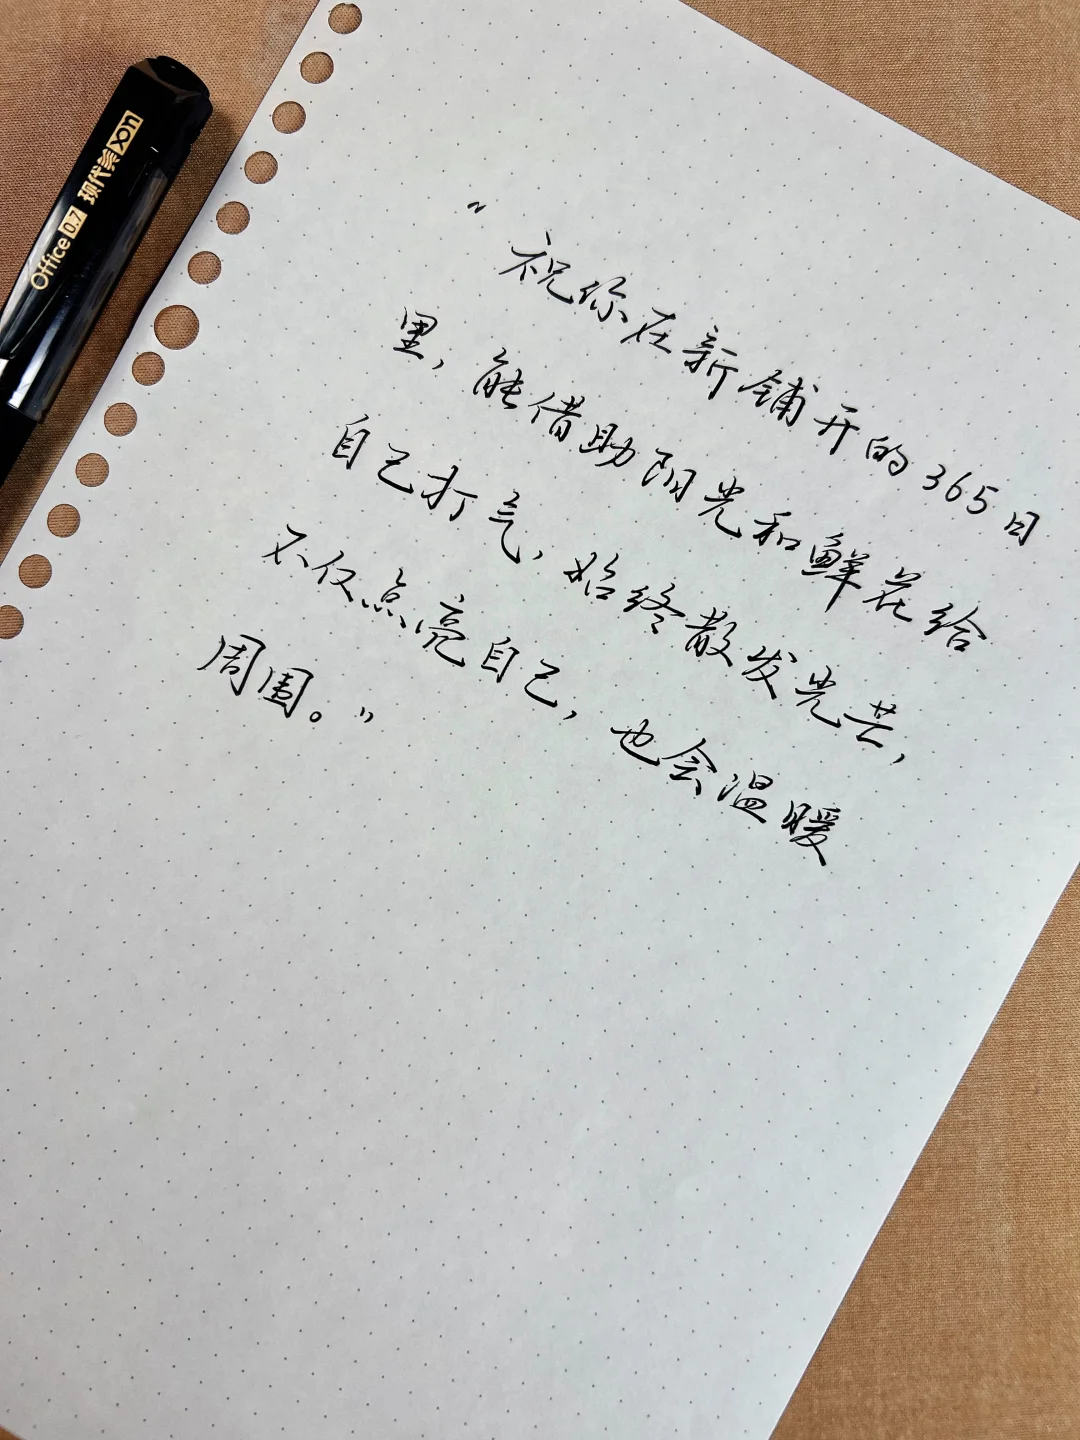 “祝你在新铺开的365日
里,能借助阳光和鲜花给
自己打气,始终散发光芒,
不仅点亮自己,也会温暖
周围。”
Office 0.7 现代美